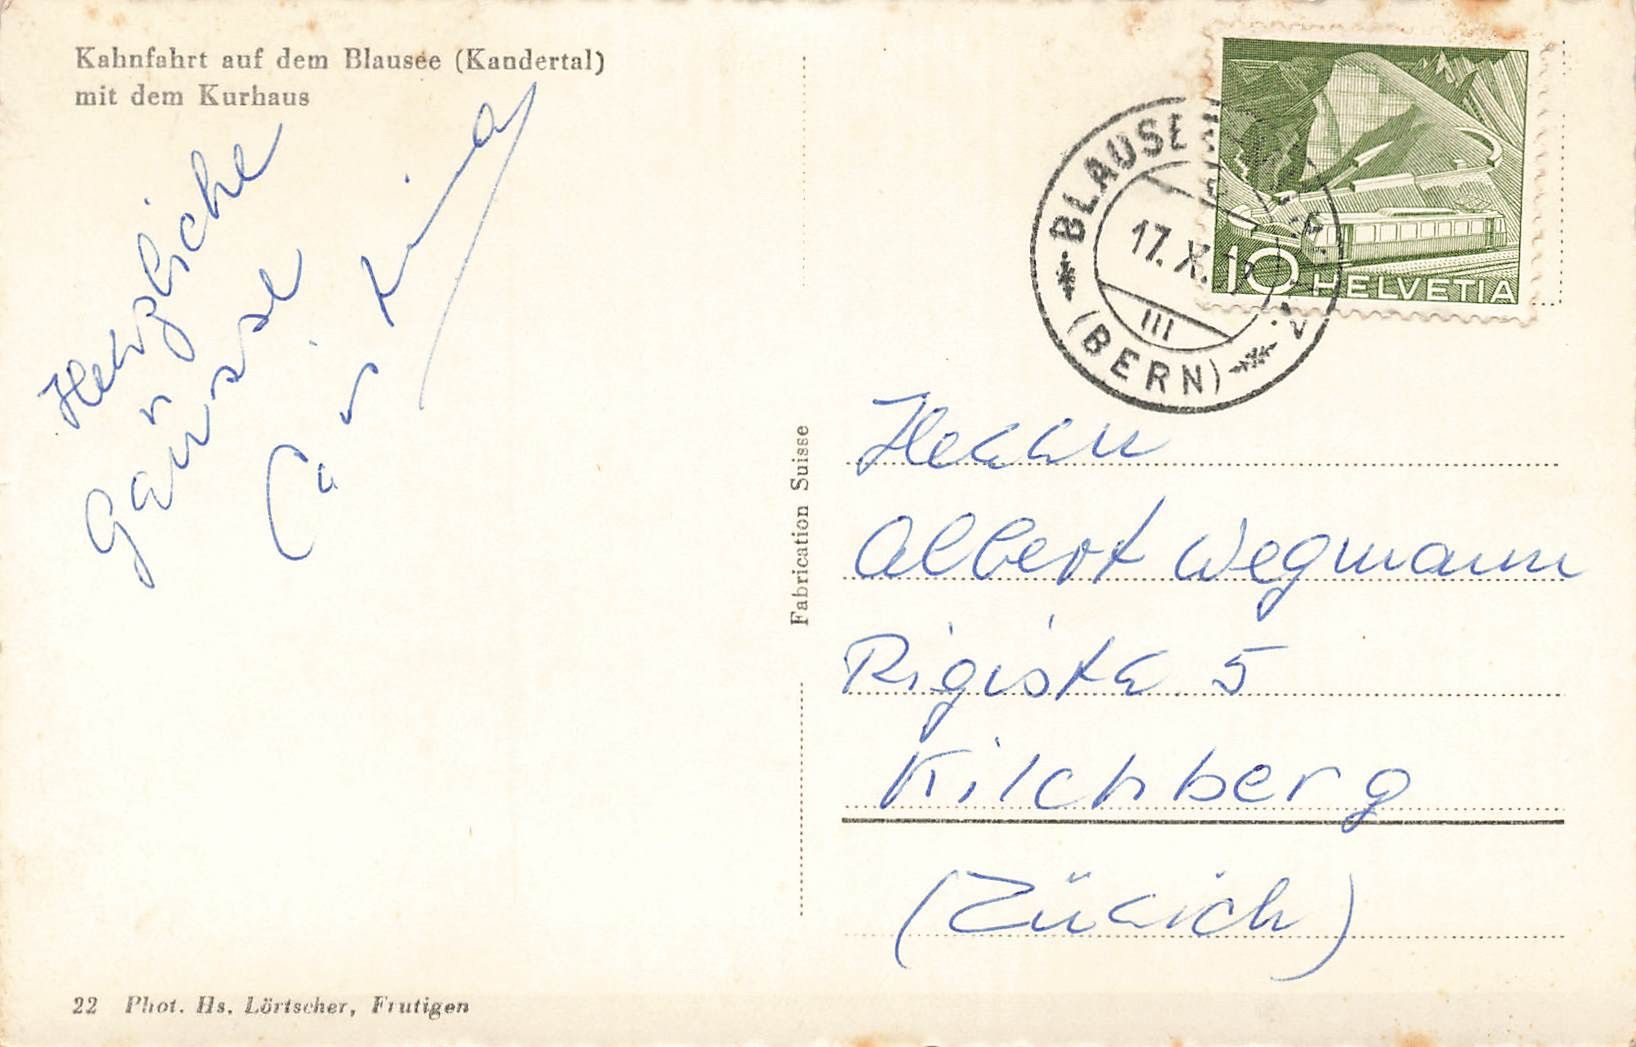 Kahnfahrt auf dem Blausee (Kandertal)
mit dem Kurhaus
Herzliche
Grüsse
BLAUSE
17. X.
III
(BERN)
10 HELVETIA
Fabrication Suisse
Herrn
Albert Wegmann
Rigistr. 5
Kilchberg
(Zürich)
22 Phot. Hs. Lörtscher, Frutigen